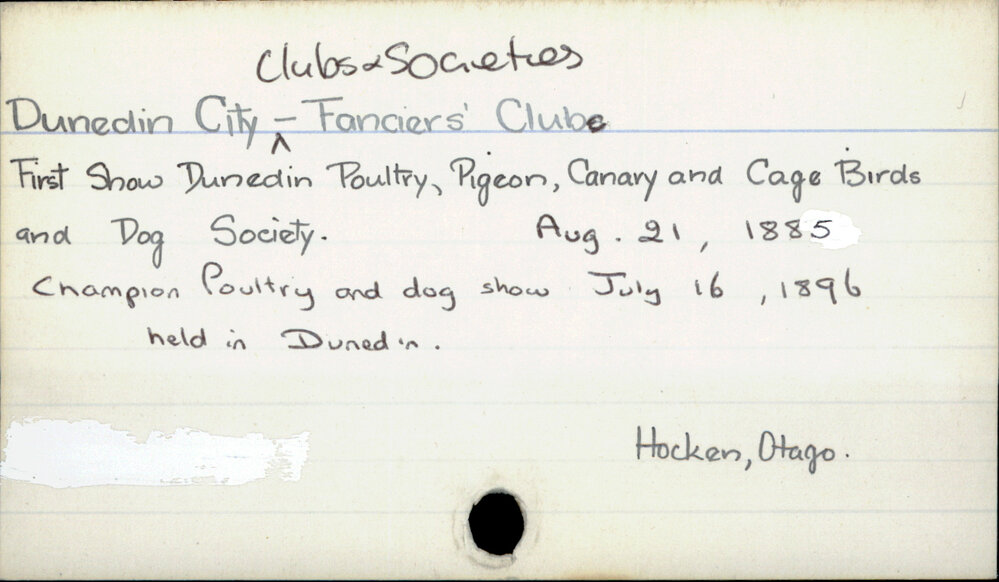 Clubs & Societies
Dunedin City - Fanciers' Clubs
First Show Dunedin Poultry, Pigeon, Canary and Cage Birds
and Dog Society. Aug. 21, 1885
Champion Poultry and dog show July 16, 1896
held in Dunedin.
Hocken, Otago.